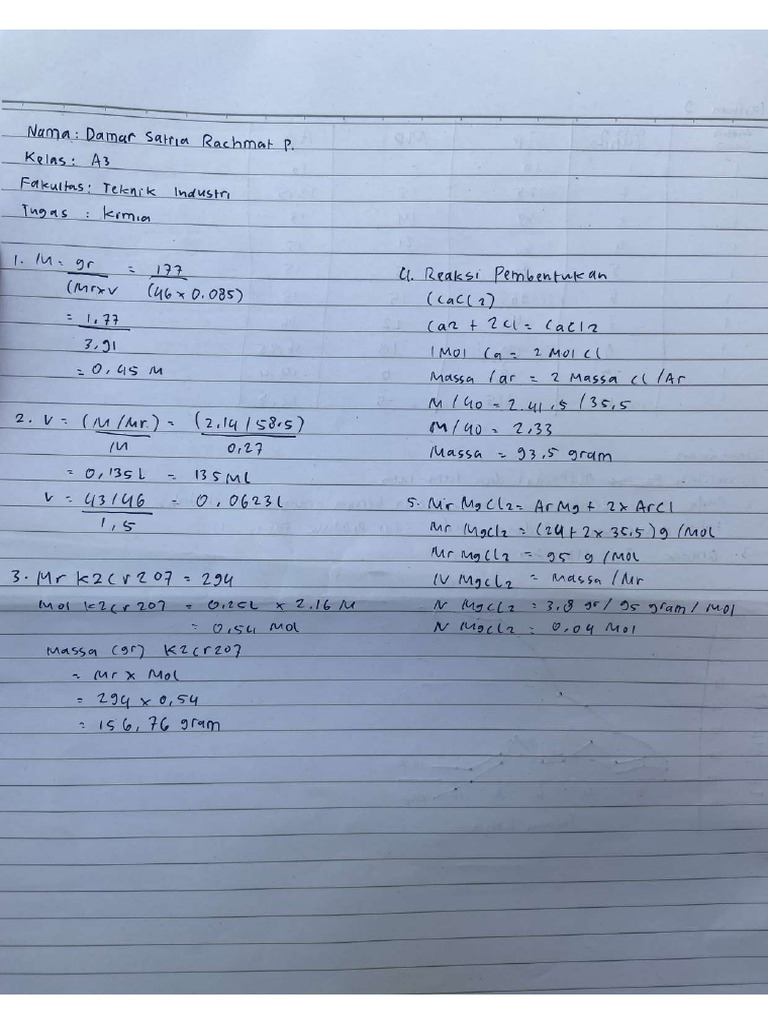 Nama : Damar Satria Rachmat P.
Kelas : A3
Fakultas : Teknik Industri
Tugas : Kimia
1. M = gr / (Mr x V = 177 / (46 x 0.085)
= 1,77 / 3,91
= 0,45 M
2. V = (M/Mr) / M = (2,14/58.5) / 0,27
= 0,135 L = 135 ML
V = 43/46 / 1,5 = 0,0623 L
3. Mr K2Cr2O7 = 294
Mol K2Cr2O7 = 0.25L x 2.16 M
= 0,54 Mol
Massa (gr) K2Cr2O7
= Mr x Mol
= 294 x 0,54
= 156,76 gram
4. Reaksi Pembentukan
(CaCl2)
Ca2 + 2Cl = CaCl2
1 Mol Ca = 2 Mol Cl
Massa / ar = 2 Massa Cl / Ar
M/40 = 2.41,5 / 35,5
M/40 = 2,33
Massa = 93,5 gram
5. Mr MgCl2 = Ar Mg + 2x ArCl
Mr MgCl2 = (24 + 2 x 35,5) g/Mol
Mr MgCl2 = 95 g/Mol
N MgCl2 = Massa / Mr
N MgCl2 = 3,8 gr / 95 gram / Mol
N MgCl2 = 0,04 Mol